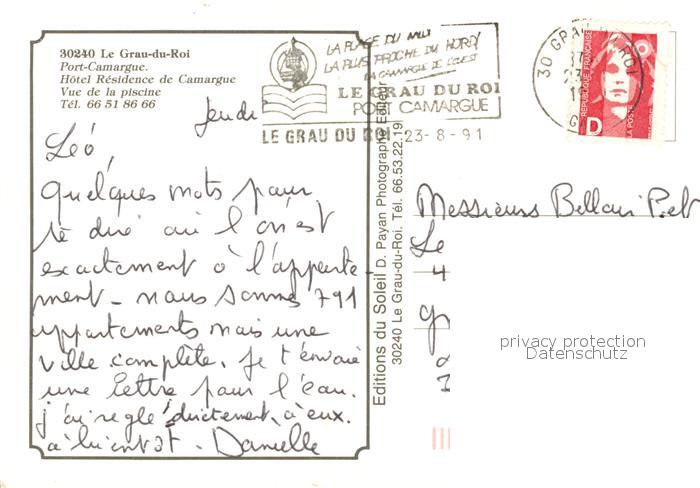 30240 Le Grau-du-Roi
Port-Camargue.
Hôtel Résidence de Camargue
Vue de la piscine
Tél. 66 51 86 66
Jeudi
Léo,
Quelques mots pour
te dire où l'on est
exactement à l'apparte-
ment - nous sommes 791
appartements mais une
ville complète. Je t'envoie
une lettre pour l'eau.
j'ai réglé directement à eux.
à bientôt. Danielle
Editions du Soleil D. Payan Photographe Editeur
30240 Le Grau-du-Roi. Tél. 66.53.22.19
LA PLAGE DU MIDI
LA PLUS PROCHE DU NORD
LA CAMARGUE DE L'OUEST
LE GRAU DU ROI
PORT CAMARGUE
LE GRAU DU ROI 23-8-91
30 GRAU DU ROI
REPUBLIQUE FRANÇAISE
D
LA POSTE
Messieurs
Le
privacy protection
Datenschutz